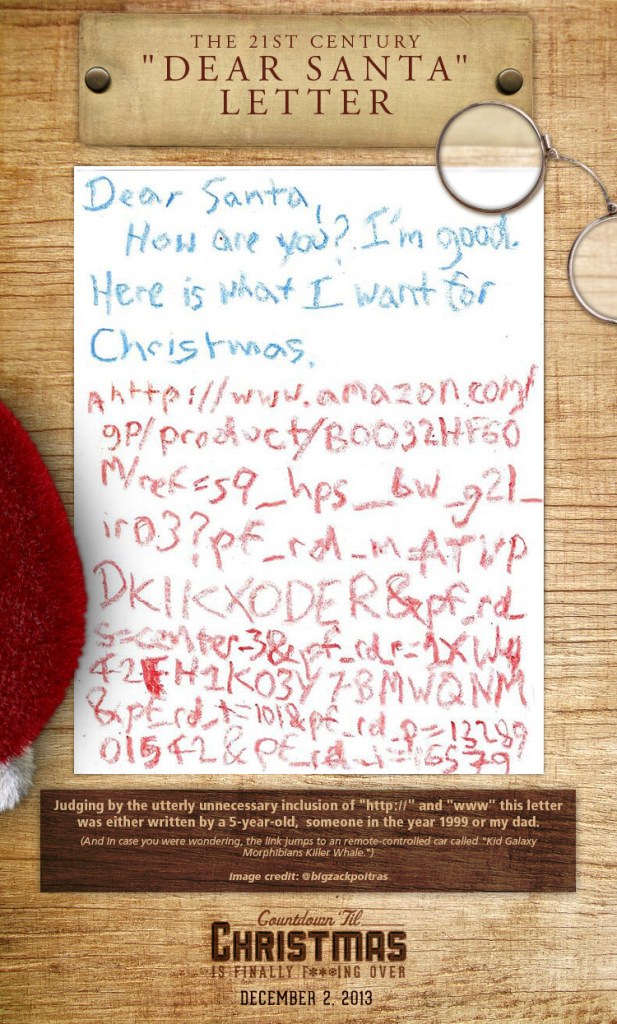 THE 21ST CENTURY
"DEAR SANTA"
LETTER
Dear Santa,
How are you? I'm good.
Here is what I want for
Christmas.
A http://www.amazon.com/
gp/product/B0032HF60
M/ref=s9_hps_bw_g21_
ir03?pf_rd_m=ATVP
DKIKX0DER&pf_rd_
s=center-3&pf_rd_r=1XW4
42FH1K03Y78MWQNM
&pf_rd_t=101&pf_rd_p=13289
01542&pf_rd_i=16579
Judging by the utterly unnecessary inclusion of "http://" and "www" this letter
was either written by a 5-year-old, someone in the year 1999 or my dad.
(And in case you were wondering, the link jumps to an remote-controlled car called "Kid Galaxy
Morphibians Killer Whale.")
Image credit: @bigzackpoitras
Countdown 'Til
CHRISTMAS
IS FINALLY F***ING OVER
DECEMBER 2, 2013